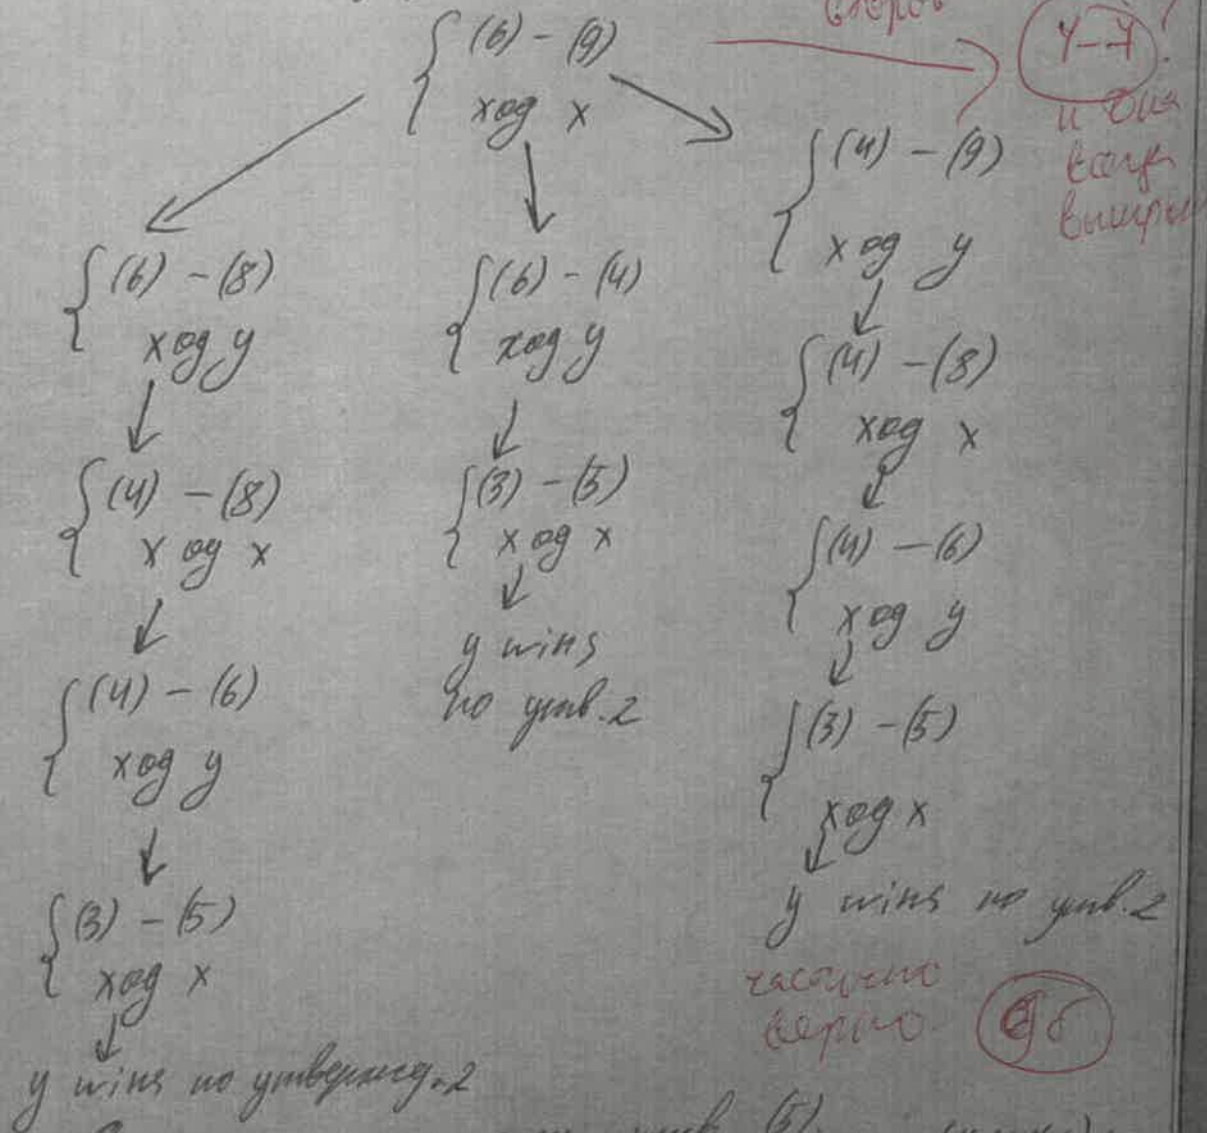 (6) - (9)
ход x
(6) - (8)
ход y
(4) - (8)
ход x
(4) - (6)
ход y
(3) - (5)
ход x
y wins по утвержд. 2
(6) - (4)
ход y
(3) - (5)
ход x
y wins
по утв. 2
(4) - (9)
ход y
(4) - (8)
ход x
(4) - (6)
ход y
(3) - (5)
ход x
y wins по утв. 2
и
частично
верно
(5)